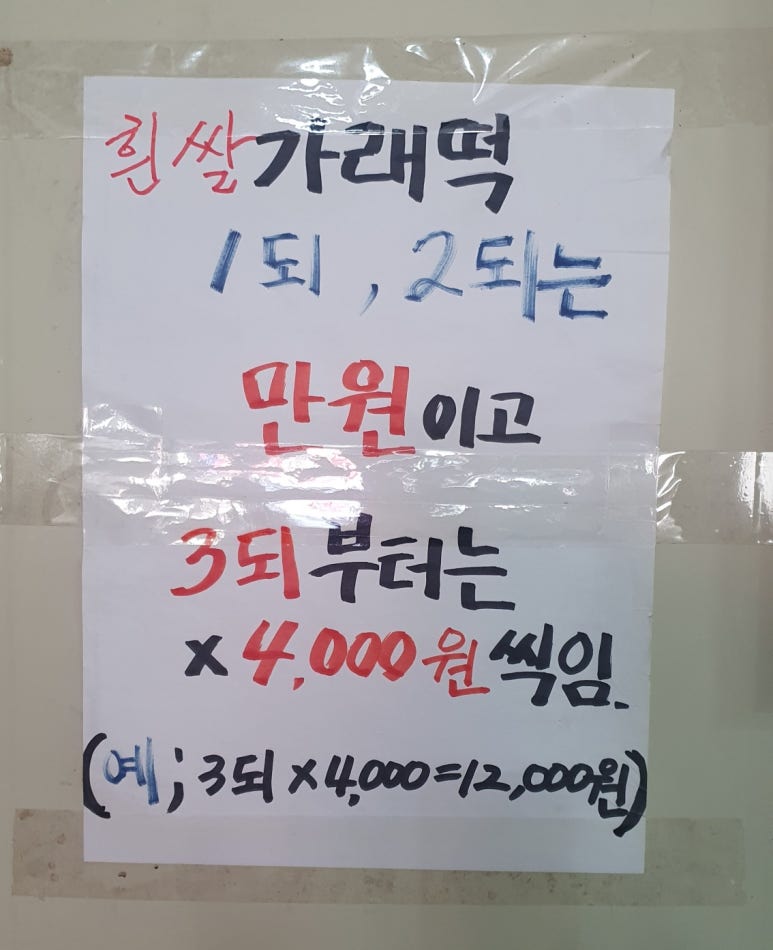 흰쌀가래떡
1되, 2되는
만원이고
3되부터는
x 4,000원씩임.
(예; 3되 x 4,000=12,000원)